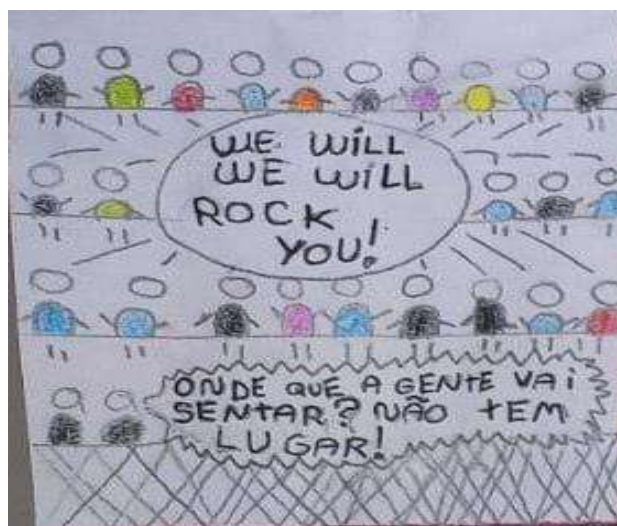 WE WILL
WE WILL
ROCK
YOU!
ONDE QUE A GENTE VAI
SENTAR? NÃO TEM
LUGAR!